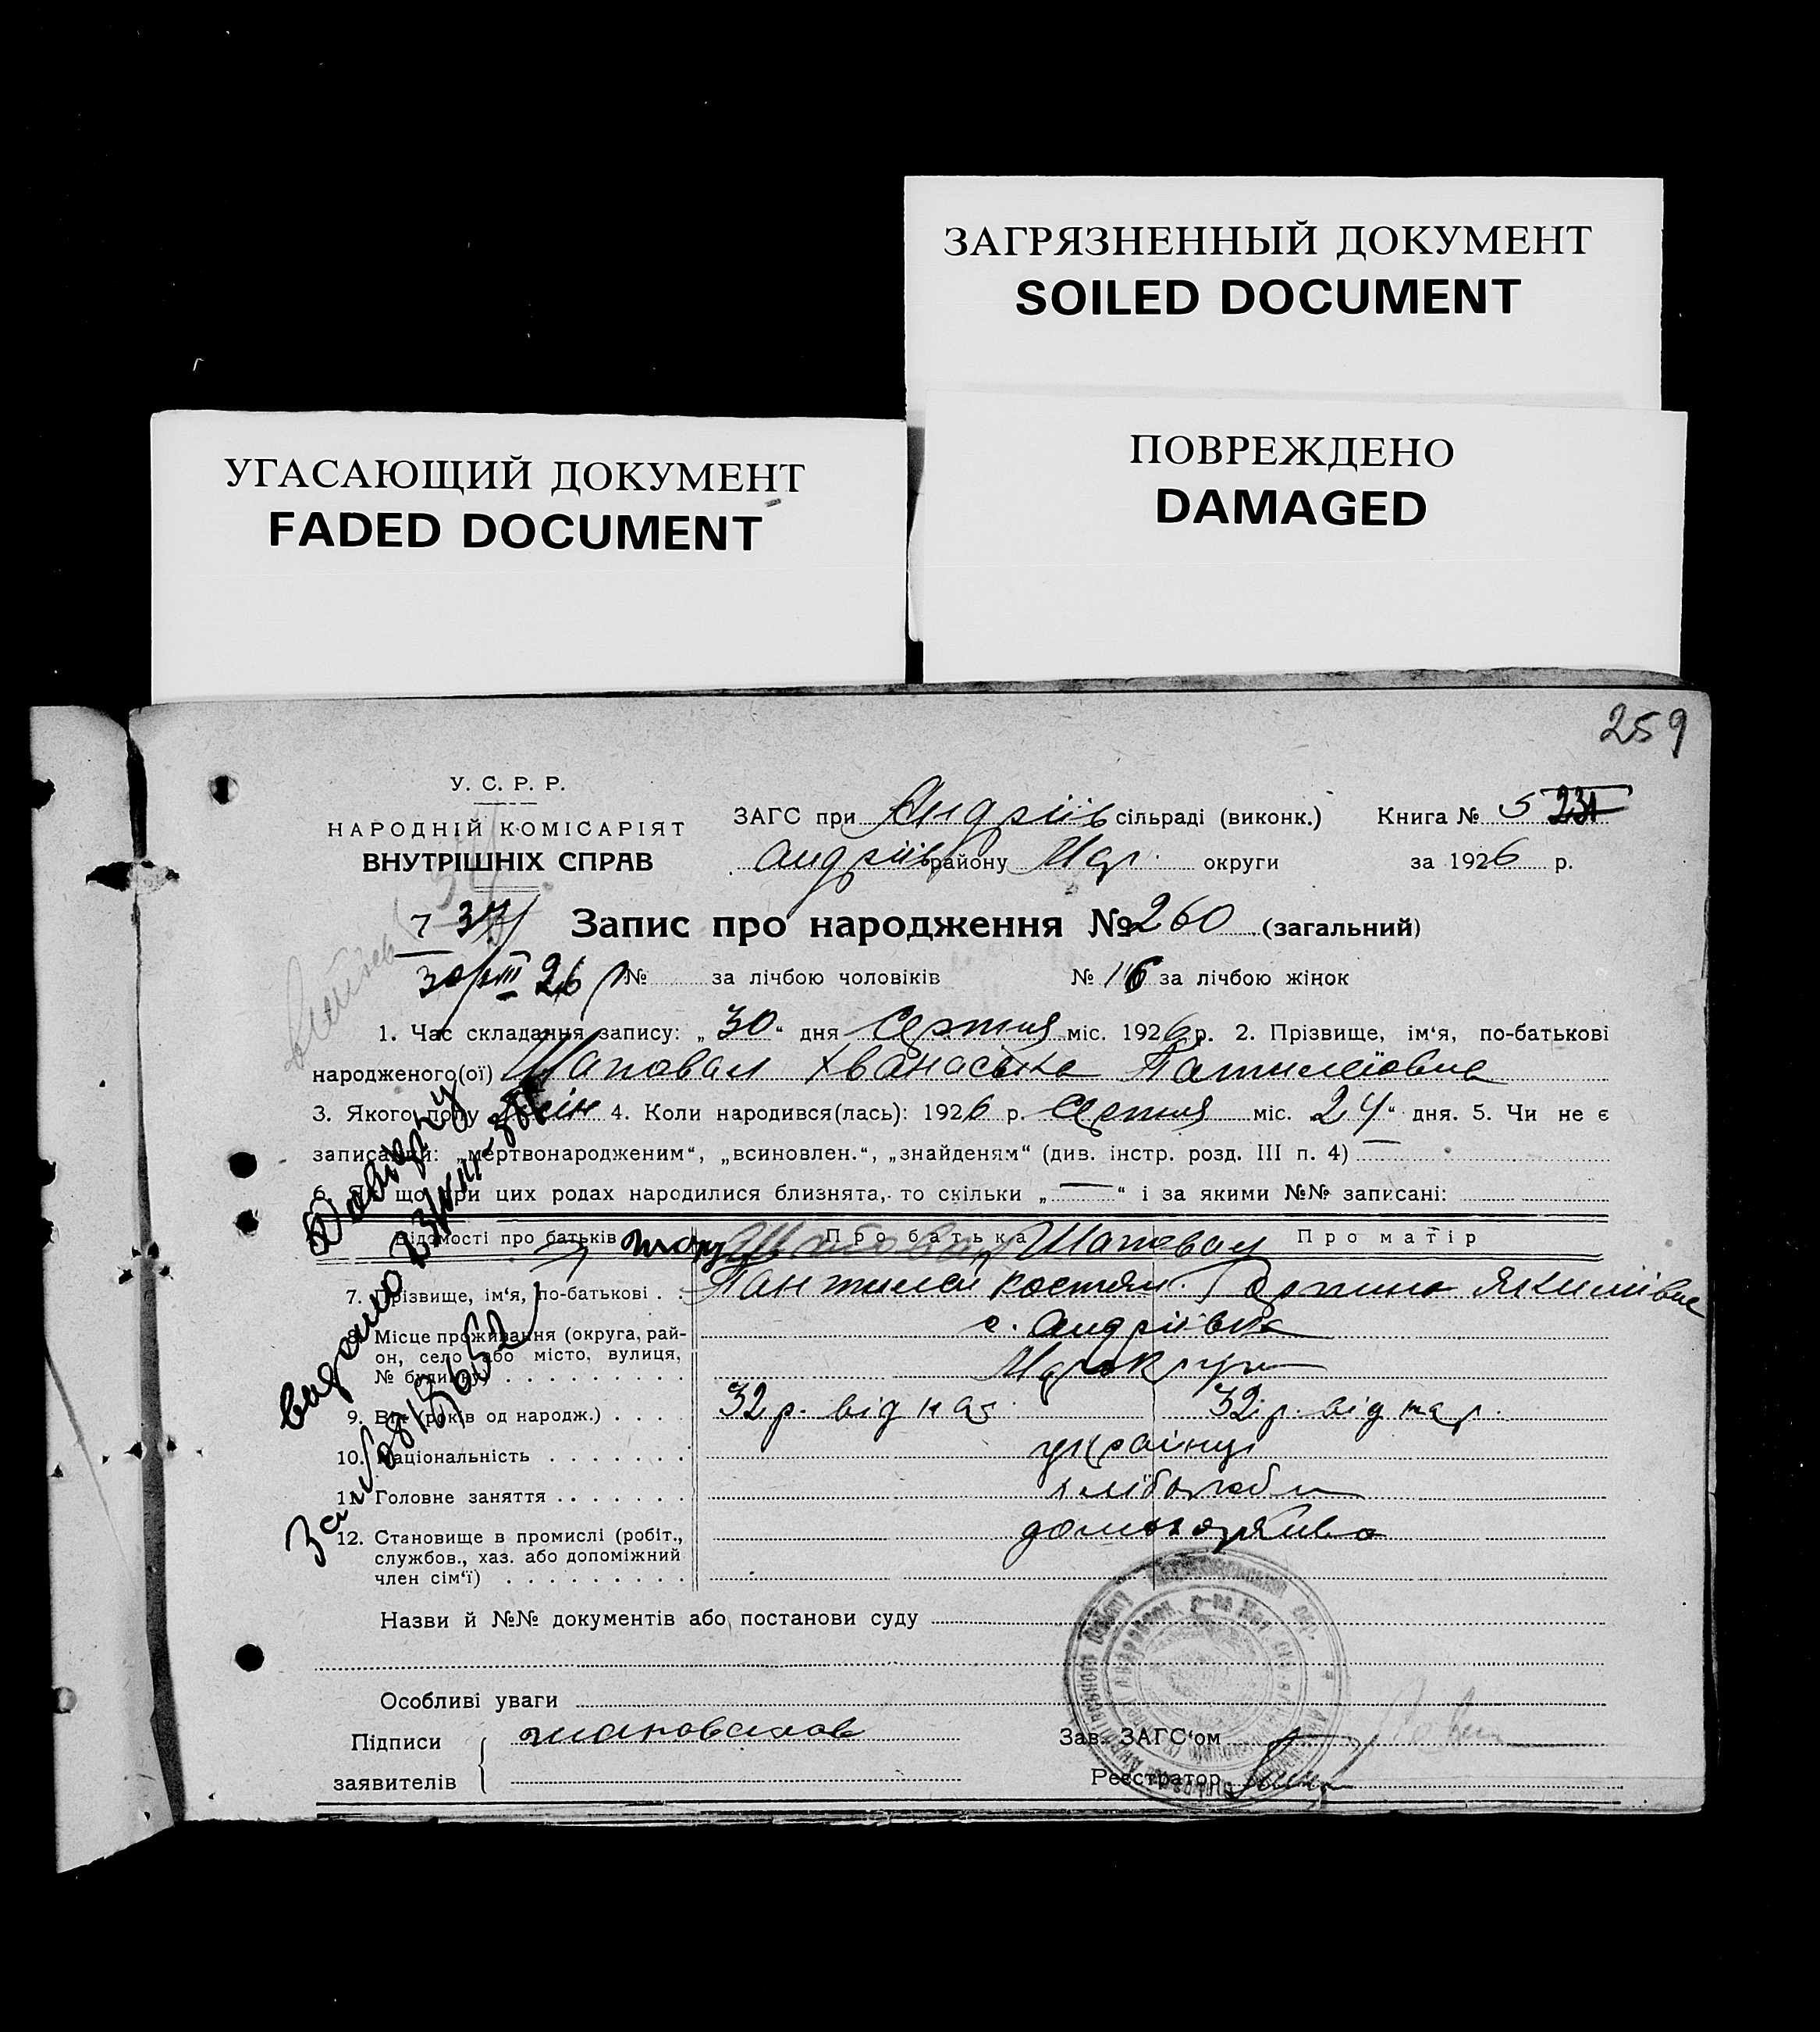 ЗАГРЯЗНЕННЫЙ ДОКУМЕНТ
SOILED DOCUMENT
УГАСАЮЩИЙ ДОКУМЕНТ
FADED DOCUMENT
ПОВРЕЖДЕНО
DAMAGED
259
У. С. Р. Р.
НАРОДНІЙ КОМІСАРІЯТ
ВНУТРІШНІХ СПРАВ
ЗАГС при Андріїв сільраді (виконк.) Книга № 5 231
Андріїв району Мар. округи за 1926 р.
Запис про народження № 260 (загальний)
7 37
30/VIII 26 р № за лічбою чоловіків № 16 за лічбою жінок
1. Час складання запису: „30“ дня Серпня міс. 1926 р. 2. Прізвище, ім‘я, по-батькові
народженого(ої) Шаповал Хванаська
3. Якого полу жін 4. Коли народився(лась): 1926 р. Серпня міс. 24“ дня. 5. Чи не є
записаний: „мертвонародженим“, „всиновлен.“, „знайденям“ (див. інстр. розд. III п. 4) —
6. Як що при цих родах народилися близнята, то скільки „—“ і за якими №№ записані:
Відомості про батьків Про батька Шаповал Про матір
7. Прізвище, ім‘я, по-батькові . Пантилей Костян. Якимівне
8. Місце проживання (округа, рай-
он, село або місто, вулиця,
№ будинку) . . . . . . . . .
с. Андріївка
Мар округи
9. Вік (років од народж.) . . . 32 р. від нар. 32 р. від нар.
10. Національність . . . . . . . українці
11. Головне заняття . . . . . . хлібороби
12. Становище в промислі (робіт.,
службов., хаз. або допоміжний
член сім‘ї) . . . . . . . . .
Назви й №№ документів або постанови суду
Особливі уваги
Підписи
заявителів
Зав. ЗАГС‘ом
Реєстратор
видано